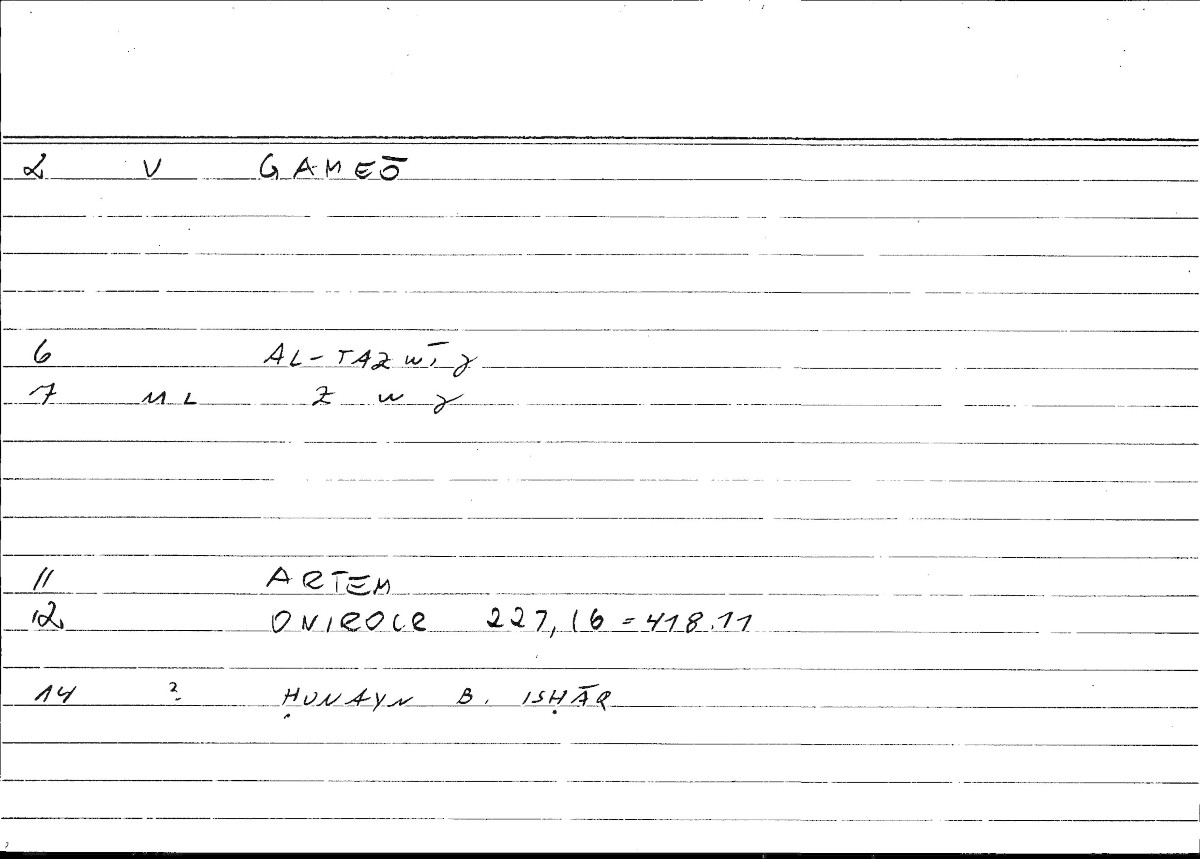 2 V GAMEŌ
6 AL-TAZWĪǧ
7 ML Z W ǧ
11 ARTEM
12 ONIROCR 227,16 = 418.11
14 ? ḤUNAYN B. ISḤĀQ